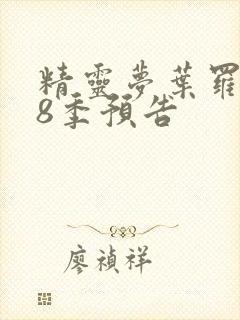 精靈夢葉羅
8季預告
廖禎祥